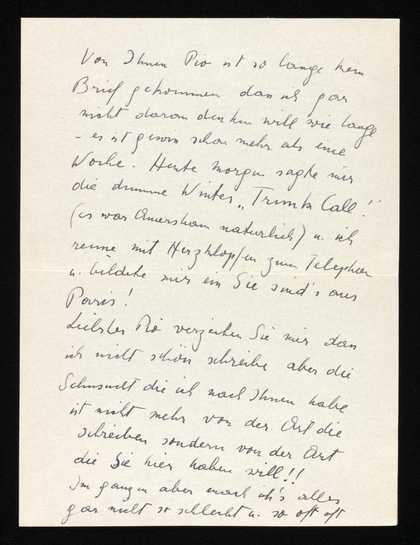 Von Ihnen Pio ist so lange kein
Brief gekommen dass ich gar
nicht daran denken will wie lange
- es ist gewiss schon mehr als eine
Woche. Heute morgen sagte mir
die dumme Winter „Trunk Call!
(es war Amersham natürlich) u. ich
renne mit Herzklopfen zum Telephon
u. bildete mir ein Sie sind's aus
Paris!
Liebster Pio verzeihen Sie mir dass
ich nicht schön schreibe aber die
Sehnsucht die ich nach Ihnen habe
ist nicht mehr von der Art die
schreiben sondern von der Art
die Sie hier haben will!!
Im ganzen aber mach ich's alles
gar nicht so schlecht u. so oft oft